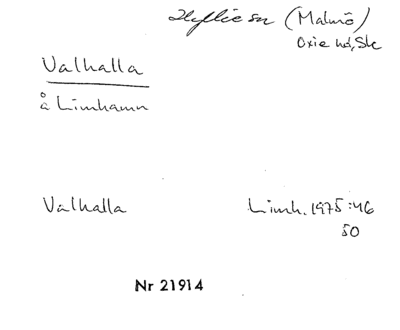 Hyllie sn (Malmö)
Oxie hd, Sk
Valhalla
å Limhamn
Valhalla Limh. 1975:46
50
Nr 21914